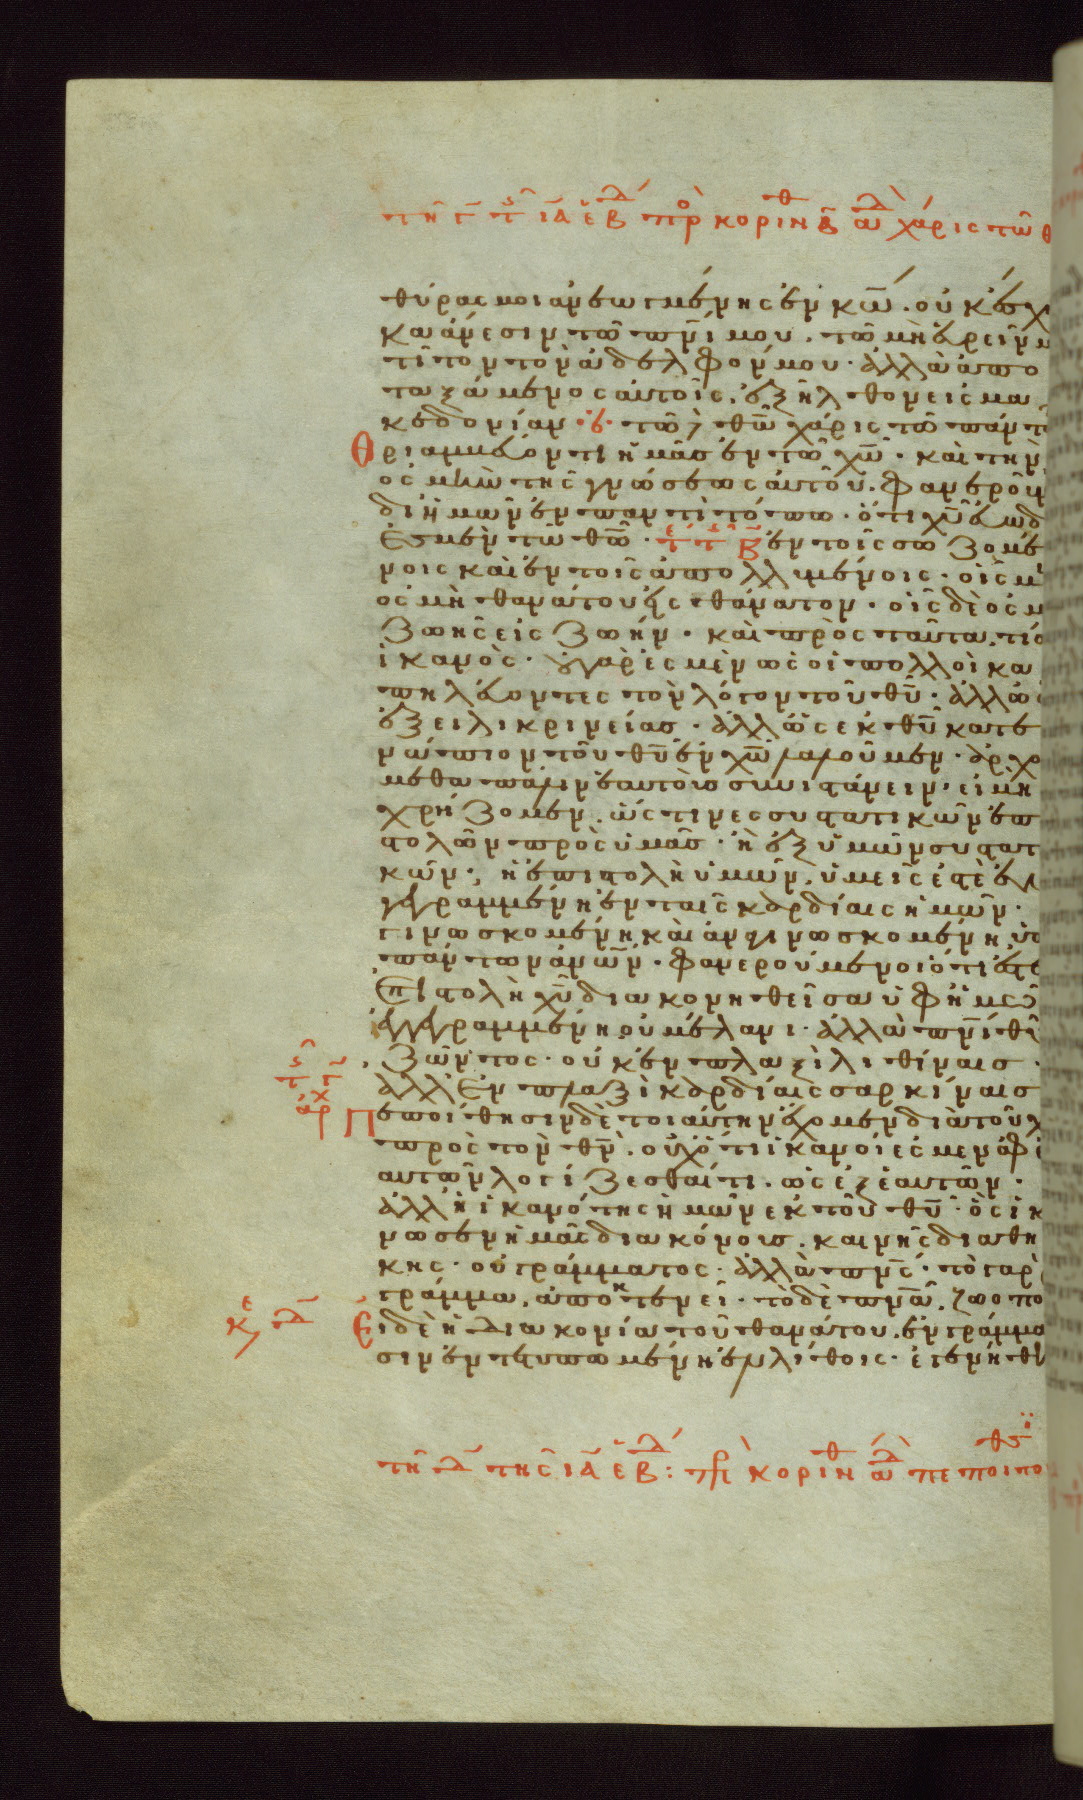 τῆ γ τ ιᾱ ἑβδ πρ κοριν β ἀδ χάρις τῶ θ
θύρας μοι ἀνεωγμένης ἐν κῶ. οὐκ ἔσχ
κα ἄνεσιν τῶ πνΐ μου. τῶ μὴ εὑρεῖν μ
τίτον τὸν ἀδελφόν μου· ἀλλὰ ἀπο
ταξάμενος αὐτοῖς. ἐξῆλθον εἰς μα
κεδονίαν· τῶ θῶ χάρις τῶ πάντο
θριαμβεύοντι ἡμᾶς ἐν τῶ χῶ· καὶ τὴν
ὀσμὴν τῆς γνώσεως αὐτοῦ. φανεροῦν
δι ἡμῶν ἐν παντὶ τόπω· ὅτι χῦ εὐωδ
ἐσμὲν τῶ θῶ· ἐν τοῖς σωζομέ
νοις καὶ ἐν τοῖς ἀπολλυμένοις· οἷς μ
ὀσμὴ θανάτου εἰς θάνατον· οἷς δὲ ὀσμ
ζωῆς εἰς ζωήν· καὶ πρὸς ταῦτα τίσ
ἱκανὸς· οὐ γάρ ἐσμὲν ὡς οἱ πολλοὶ κα
πηλεύοντες τὸν λόγον τοῦ θῦ· ἀλλ ὡς
ἐξ εἰλικρινείας· ἀλλ ὡς ἐκ θῦ κατε
νώπιον τοῦ θῦ ἐν χῶ λαλοῦμεν· ἀρχο
μεθα πάλιν ἑαυτοὺς συνιστάνειν· εἰ μὴ
χρήζομεν. ὥς τινες συστατικῶν ἐπι
στολῶν πρὸς ὑμᾶς· ἢ ἐξ ὑμῶν συστατι
κῶν· ἡ ἐπιστολὴ ὑμῶν, ὑμεῖς ἐστὲ ἐγ
γεγραμμένη ἐν ταῖς καρδίαις ἡμῶν·
γινωσκομένη καὶ ἀναγινωσκομένη ὑπ
πάντων ἀνῶν· φανερούμενοι ὅτι ἐστὲ
ἐπιστολὴ χῦ διακονηθεῖσα ὑφ ἡμῶν
ἐγγεγραμμένη οὐ μέλανι· ἀλλὰ πνΐ θῦ
ζῶντος· οὐκ ἐν πλαξὶ λιθίναις·
ἀλλ ἐν πλαξὶ καρδίαις σαρκίναις
πεποίθησιν δὲ τοιαύτην ἔχομεν διὰ τοῦ χ
πρὸς τὸν θν. οὐχ ὅτι ἱκανοί ἐσμεν ἀφ
αυτῶν λογίζεσθαί τι. ὡς ἐξ ἑαυτῶν·
ἀλλ ἡ ἱκανότης ἡμῶν ἐκ τοῦ θῦ· ὃς ἱκ
νωσεν ἡμᾶς διακόνους. καινῆς διαθη
κης· οὐ γράμματος· ἀλλὰ πνς· τὸ γὰρ
γράμμα, ἀποκτενεῖ· τὸ δὲ πνα, ζωοπο
κε δ
Εἰ δὲ ἡ διακονία τοῦ θανάτου. ἐν γράμμα
σιν ἐντετυπωμένη ἐν λίθοις· ἐγενήθη
τῆ δ τῆς ιᾱ ἑβδ: πρ κοριν ἀδ πεποιπο